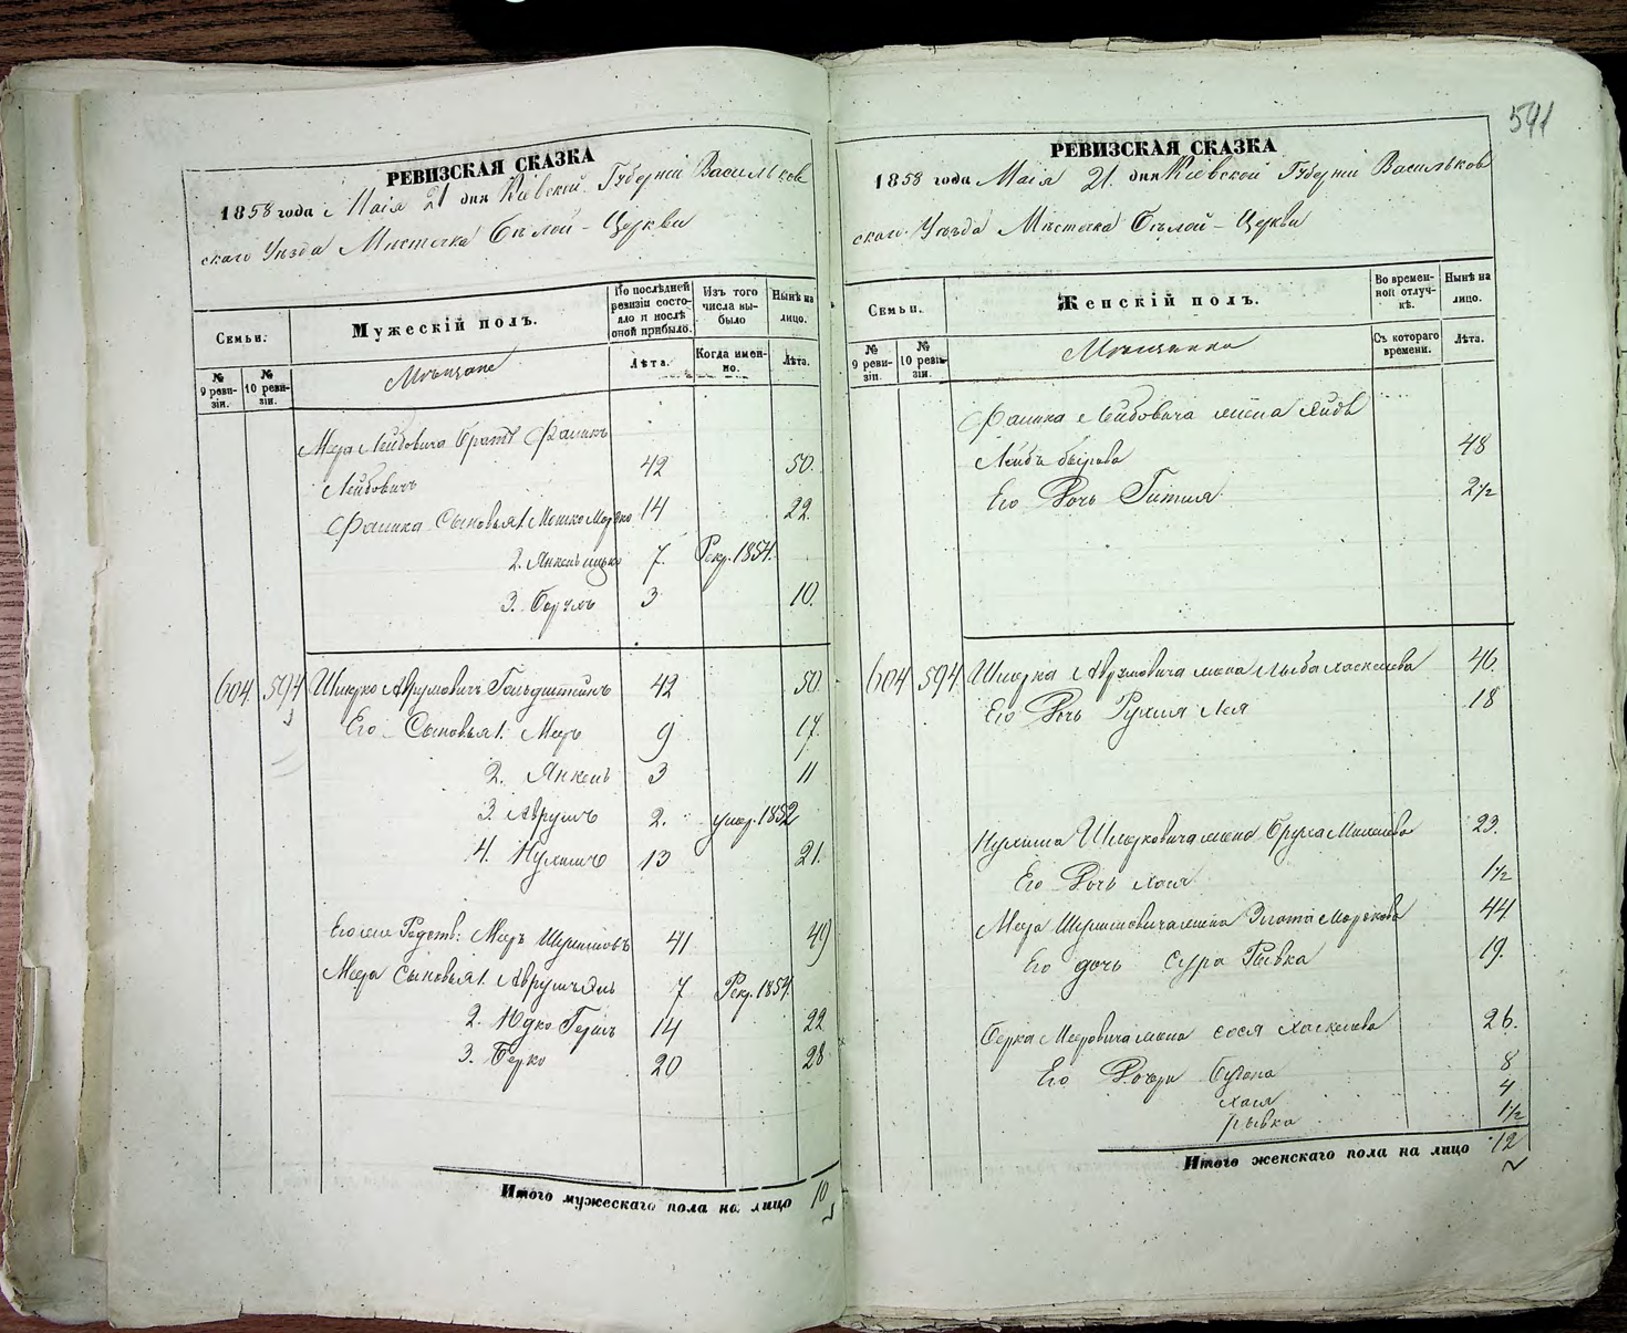 РЕВИЗСКАЯ СКАЗКА
1858 года Маія 21 дня Кіевской Губерніи Васильков
скаго Уѣзда Мѣстечка Бѣлой-Церкви
Семьи.
Мужескій полъ.
По послѣдней ревизіи состояло и послѣ оной прибыло.
Изъ того числа выбыло
Нынѣ на лицо.
№ 9 ревизіи.
№ 10 ревизіи.
Мѣщане
Лѣта.
Когда именно.
Лѣта.
Мера Лейбовича братъ Фроимъ
Лейбовичъ 42 50.
Сыновья 1. Мошко Мордко 14 22.
2. Янкель 7. Рекр. 1854.
3. Борухъ 3 10.
604. 594 Шмерко Аврумовичъ Гольдштейнъ 42 50.
Его Сыновья 1. Меръ 9 17.
2. Янкель 3 11
3. Аврумъ 2. умер. 1852
4. Нухимъ 13 21.
Родств: Меръ 41 49
Мера Сыновья 1. Аврумъ 7 Рекр. 1854.
2. Юдко Гершъ 14 22
3. Берко 20 28
Итого мужескаго пола на лицо 10
541
РЕВИЗСКАЯ СКАЗКА
1858 года Маія 21. дня Кіевской Губерніи Васильков
скаго Уѣзда Мѣстечка Бѣлой-Церкви
Семьи.
Женскій полъ.
Во временной отлучкѣ.
Нынѣ на лицо.
№ 9 ревизіи.
№ 10 ревизіи.
Мѣщанки
Съ котораго времени.
Лѣта.
Лейбовича жена
48
Его Дочь Гитля 2½
604 594 Шмерка Аврумовича жена Хаскелева 46.
Его Дочь Рухля Лея 18
Нухима Шмерковича жена 23.
Его Дочь Хая 1½
Мера жена Злота Мордкова 44
Его дочь Сура Ривка 19.
Берка Меровича жена Сося Хаскелева 26.
Его Дочери 8
Хая 4
Рывка 1½
Итого женскаго пола на лицо 12